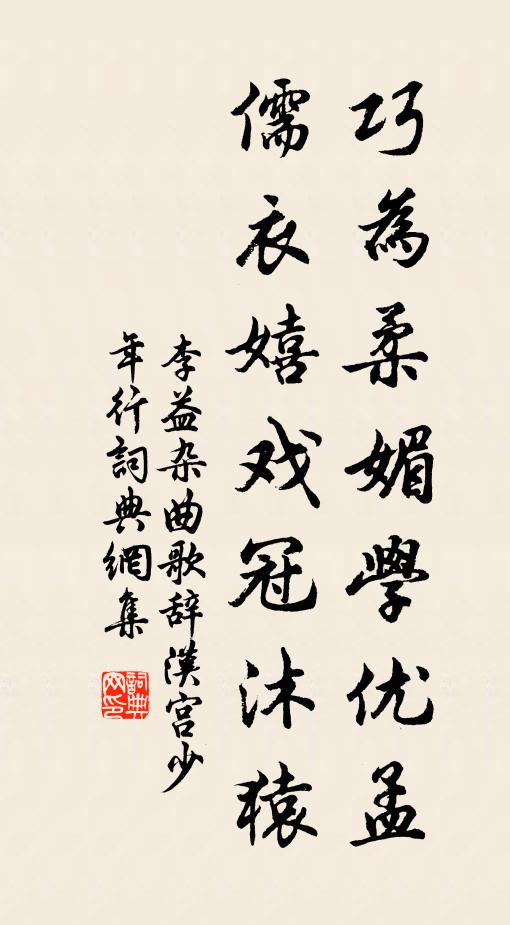 巧為柔媚學优孟
儒衣嬉戏冠沐猿
李益杂曲歌辞漢宫少
年行詞典網集
詞典
网印